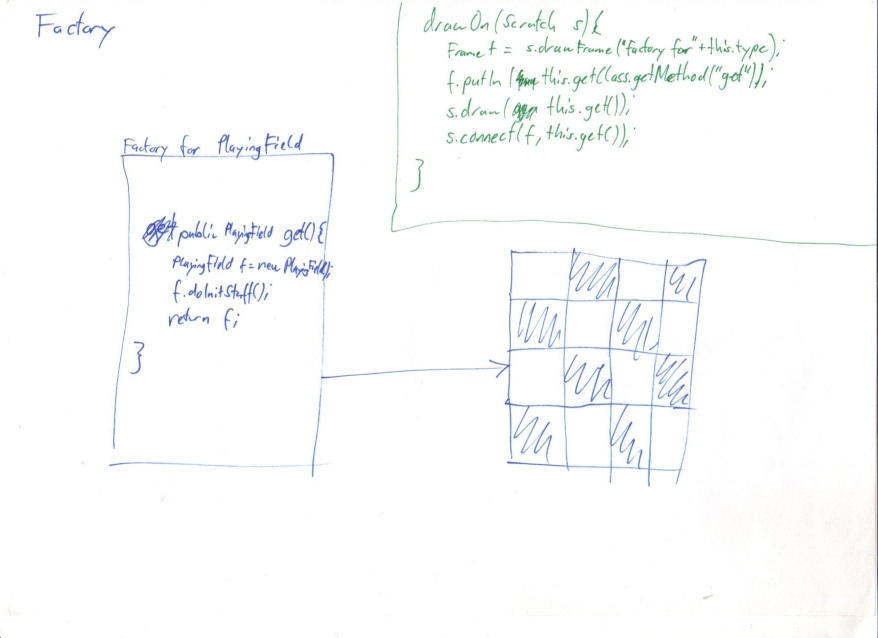 Factory
drawOn(Scratch s){
Frame f = s.drawFrame("factory for"+this.type);
f.putIn(this.getClass.getMethod("get"));
s.draw(this.get());
s.connect(f, this.get());
}
Factory for PlayingField
public PlayingField get(){
PlayingField f=new PlayingField;
f.doInitStuff();
return f;
}